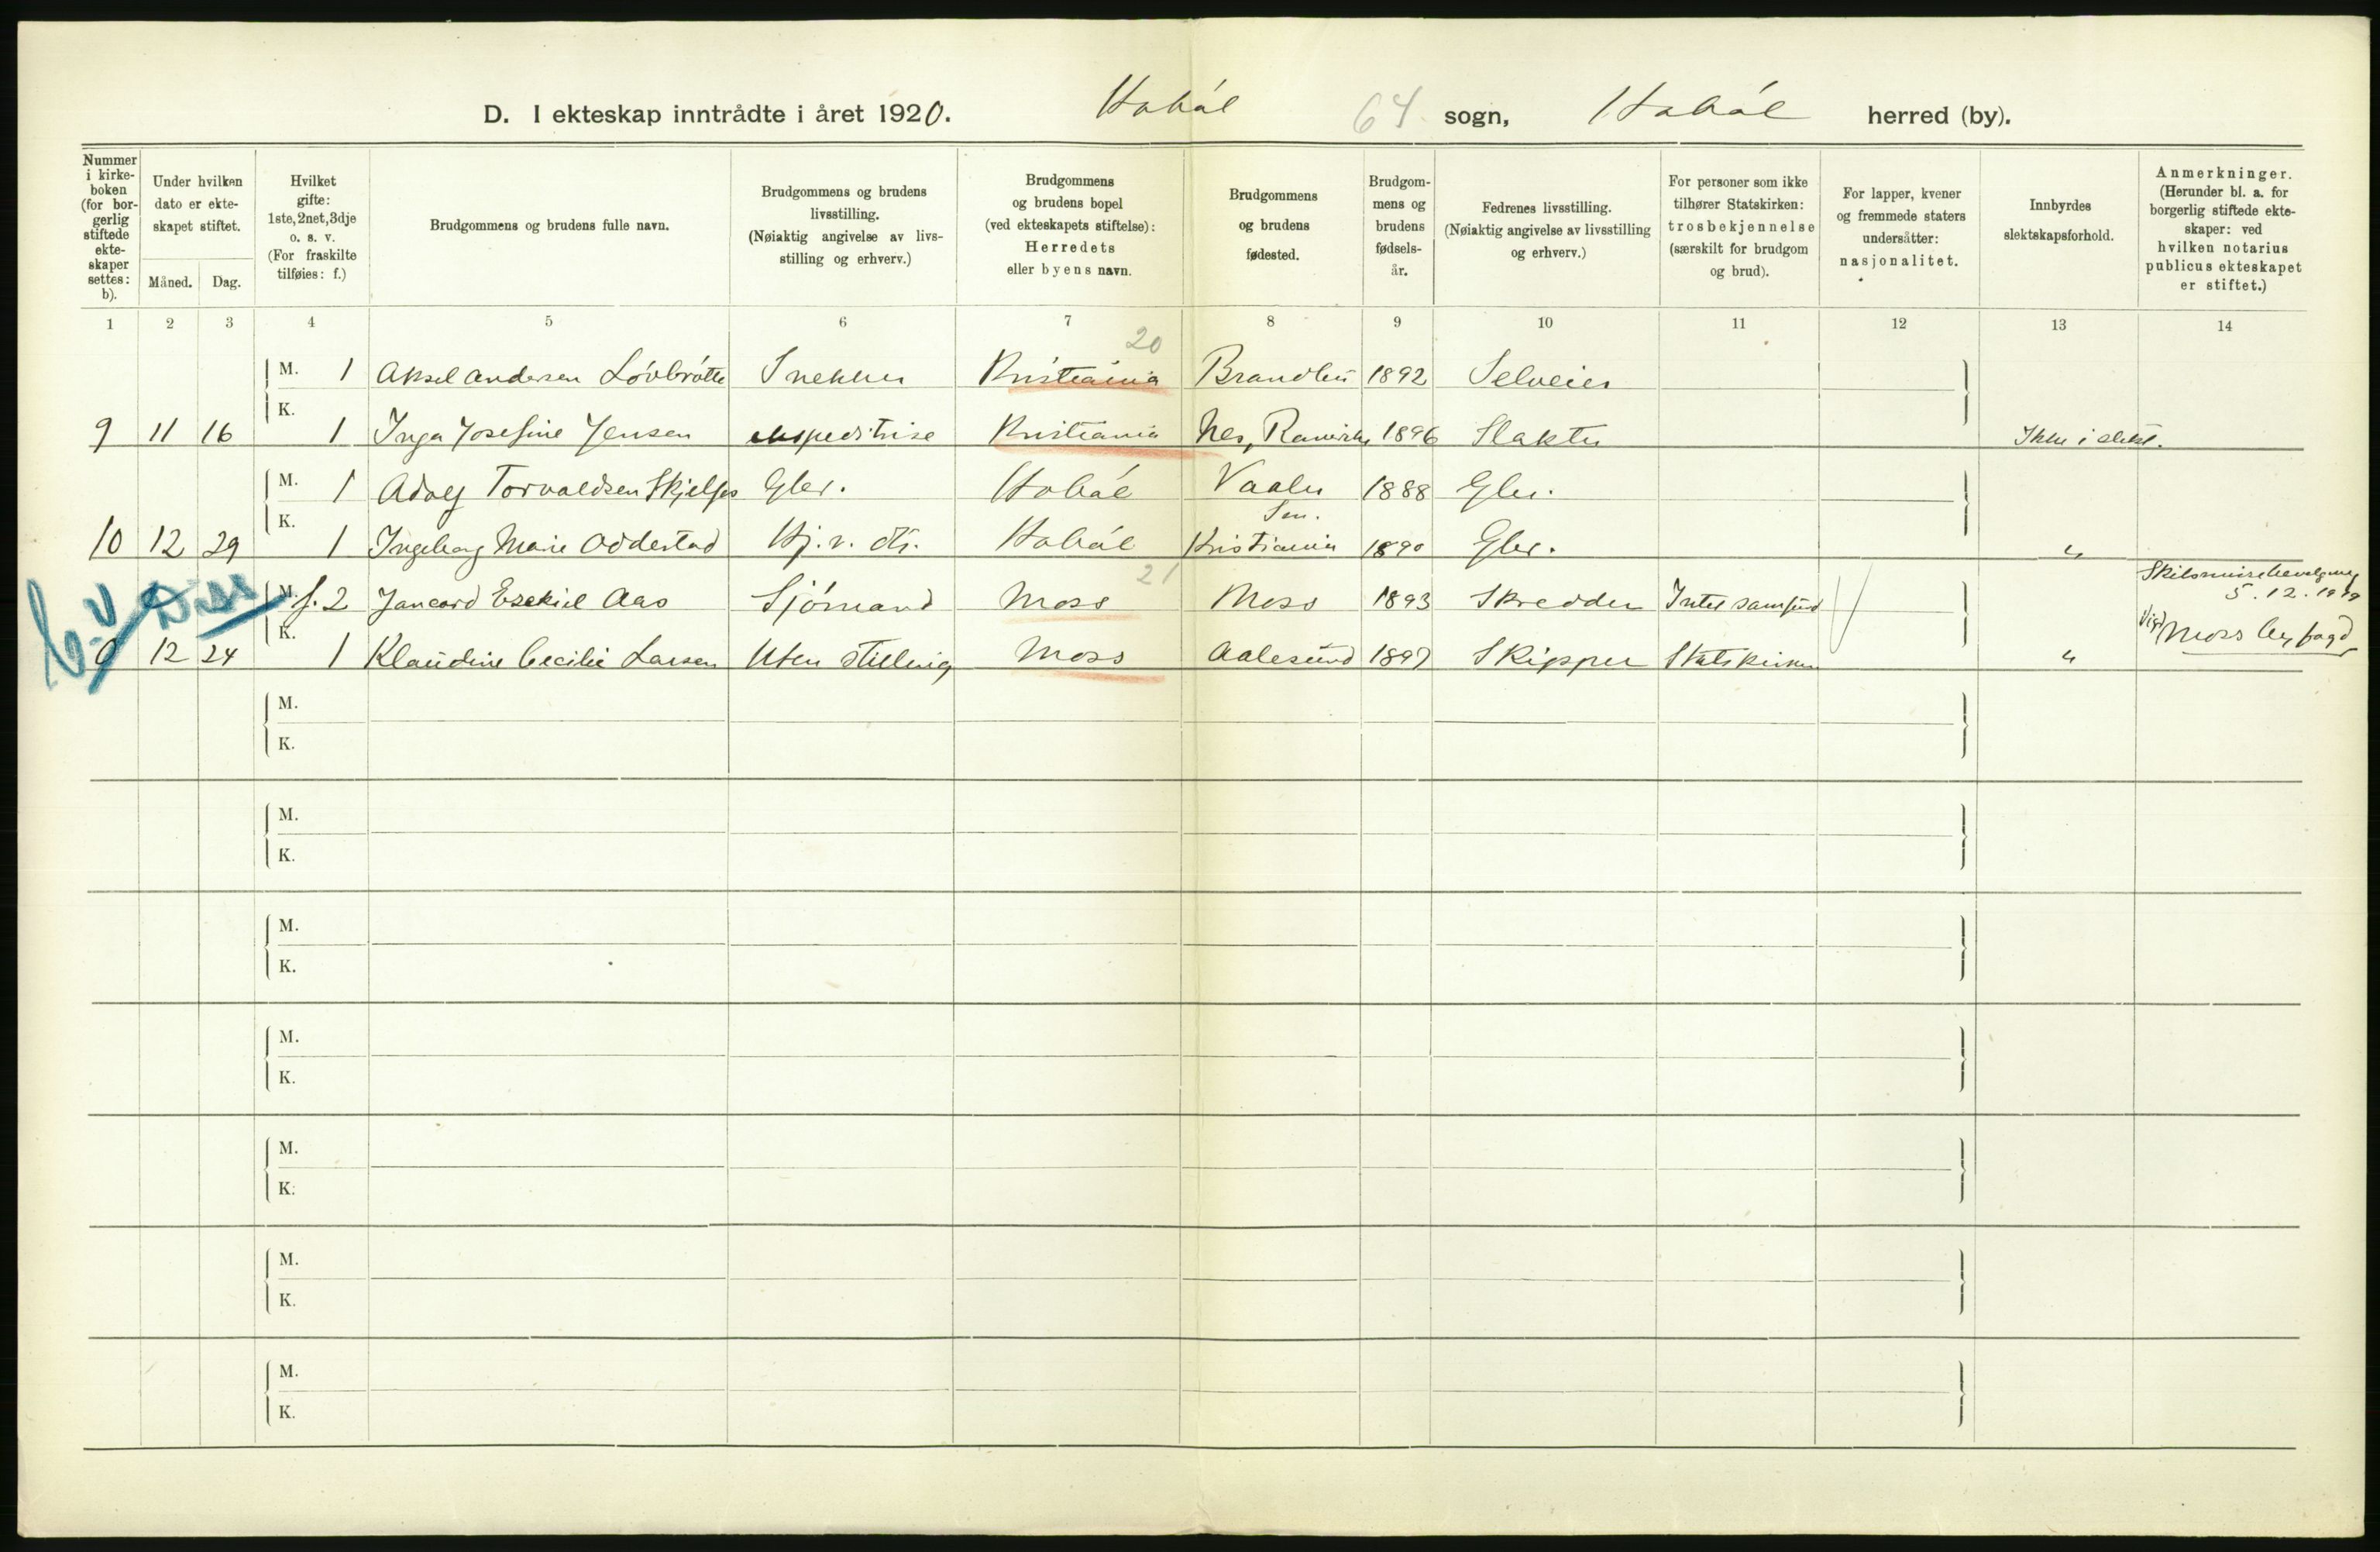 D. I ekteskap inntrådte i året 1920. Hobøl 64 sogn, Hobøl herred (by).
Nummer i kirkeboken (for borgerlig stiftede ekteskaper settes: b).
Under hvilken dato er ekteskapet stiftet.
Måned. Dag.
Hvilket gifte: 1ste, 2net, 3dje o. s. v. (For fraskilte tilføies: f.)
Brudgommens og brudens fulle navn.
Brudgommens og brudens livsstilling. (Nøiaktig angivelse av livsstilling og erhverv.)
Brudgommens og brudens bopel (ved ekteskapets stiftelse): Herredets eller byens navn.
Brudgommens og brudens fødested.
Brudgommens og brudens fødselsår.
Fedrenes livsstilling. (Nøiaktig angivelse av livsstilling og erhverv.)
For personer som ikke tilhører Statskirken: trosbekjennelse (særskilt for brudgom og brud).
For lapper, kvener og fremmede staters undersåtter: nasjonalitet.
Innbyrdes slektskapsforhold.
Anmerkninger. (Herunder bl. a. for borgerlig stiftede ekteskaper: ved hvilken notarius publicus ekteskapet er stiftet.)
1 2 3 4 5 6 7 8 9 10 11 12 13 14
20
M. 1 Aksel Andersen Lövbråtte Snekker Kristiania Brandbu 1892 Selveier
K.
9 11 16 1 Inga Josefine Jensen ekspeditrise Kristiania Nes, 1896 Slakter Ikke i slekt.
M. 1 Adolf Torvaldsen Skjelfos Gbr. Hobøl Vaaler 1888 Gbr.
K. Sm.
10 12 29 1 Ingeborg Marie Oddestad Hj.v. dtr. Hobøl Kristiania 1890 Gbr. "
21 Skilsmissebevilgning
M. f. 2 Jancord Ezekiel Aas Sjömand Moss Moss 1893 Skredder Intet samfund 5.12.1919
K. Viet
12 24 1 Klaudine Cecilie Larsen Uten stilling Moss Aalesund 1897 Skipper Statskirken " Moss byfogd
M.
K.
M.
K.
M.
K.
M.
K.
M.
K.
M.
K.
M.
K.